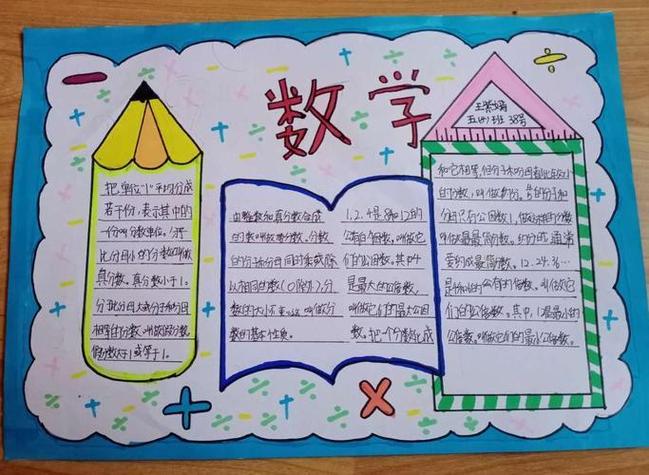 数学
王紫
五(4)班 38号
把单位"1"平均分成
若干份,表示其中的
一份叫分数单位。分子
比分母小的分数叫做
真分数。真分数小于1。
分子比分母大或分子和分母
相等的分数叫做假分数
假分数大于1或等于1。
由整数和真分数合成
的数叫做带分数。分数
的分子和分母同时乘或除
以相同的数(0除外),分
数的大小不变。叫做分
数的基本性质。
1.2.4是8和12的
公有的因数。叫做它
们的公因数。其中4
是最大的公因数
叫做它们的最大公因
数。把一个分数化成
和它相等,但分子和分母都比较小
的分数,叫做约分。的分子和
分母只有公因数1,像这样的分数
叫做最简分数。约分时,通常
要约成最简分数。12.24.36…
是公有的倍数。叫做它
们的公倍数。其中,12是最小的
公倍数。叫做它们的最小公倍数。